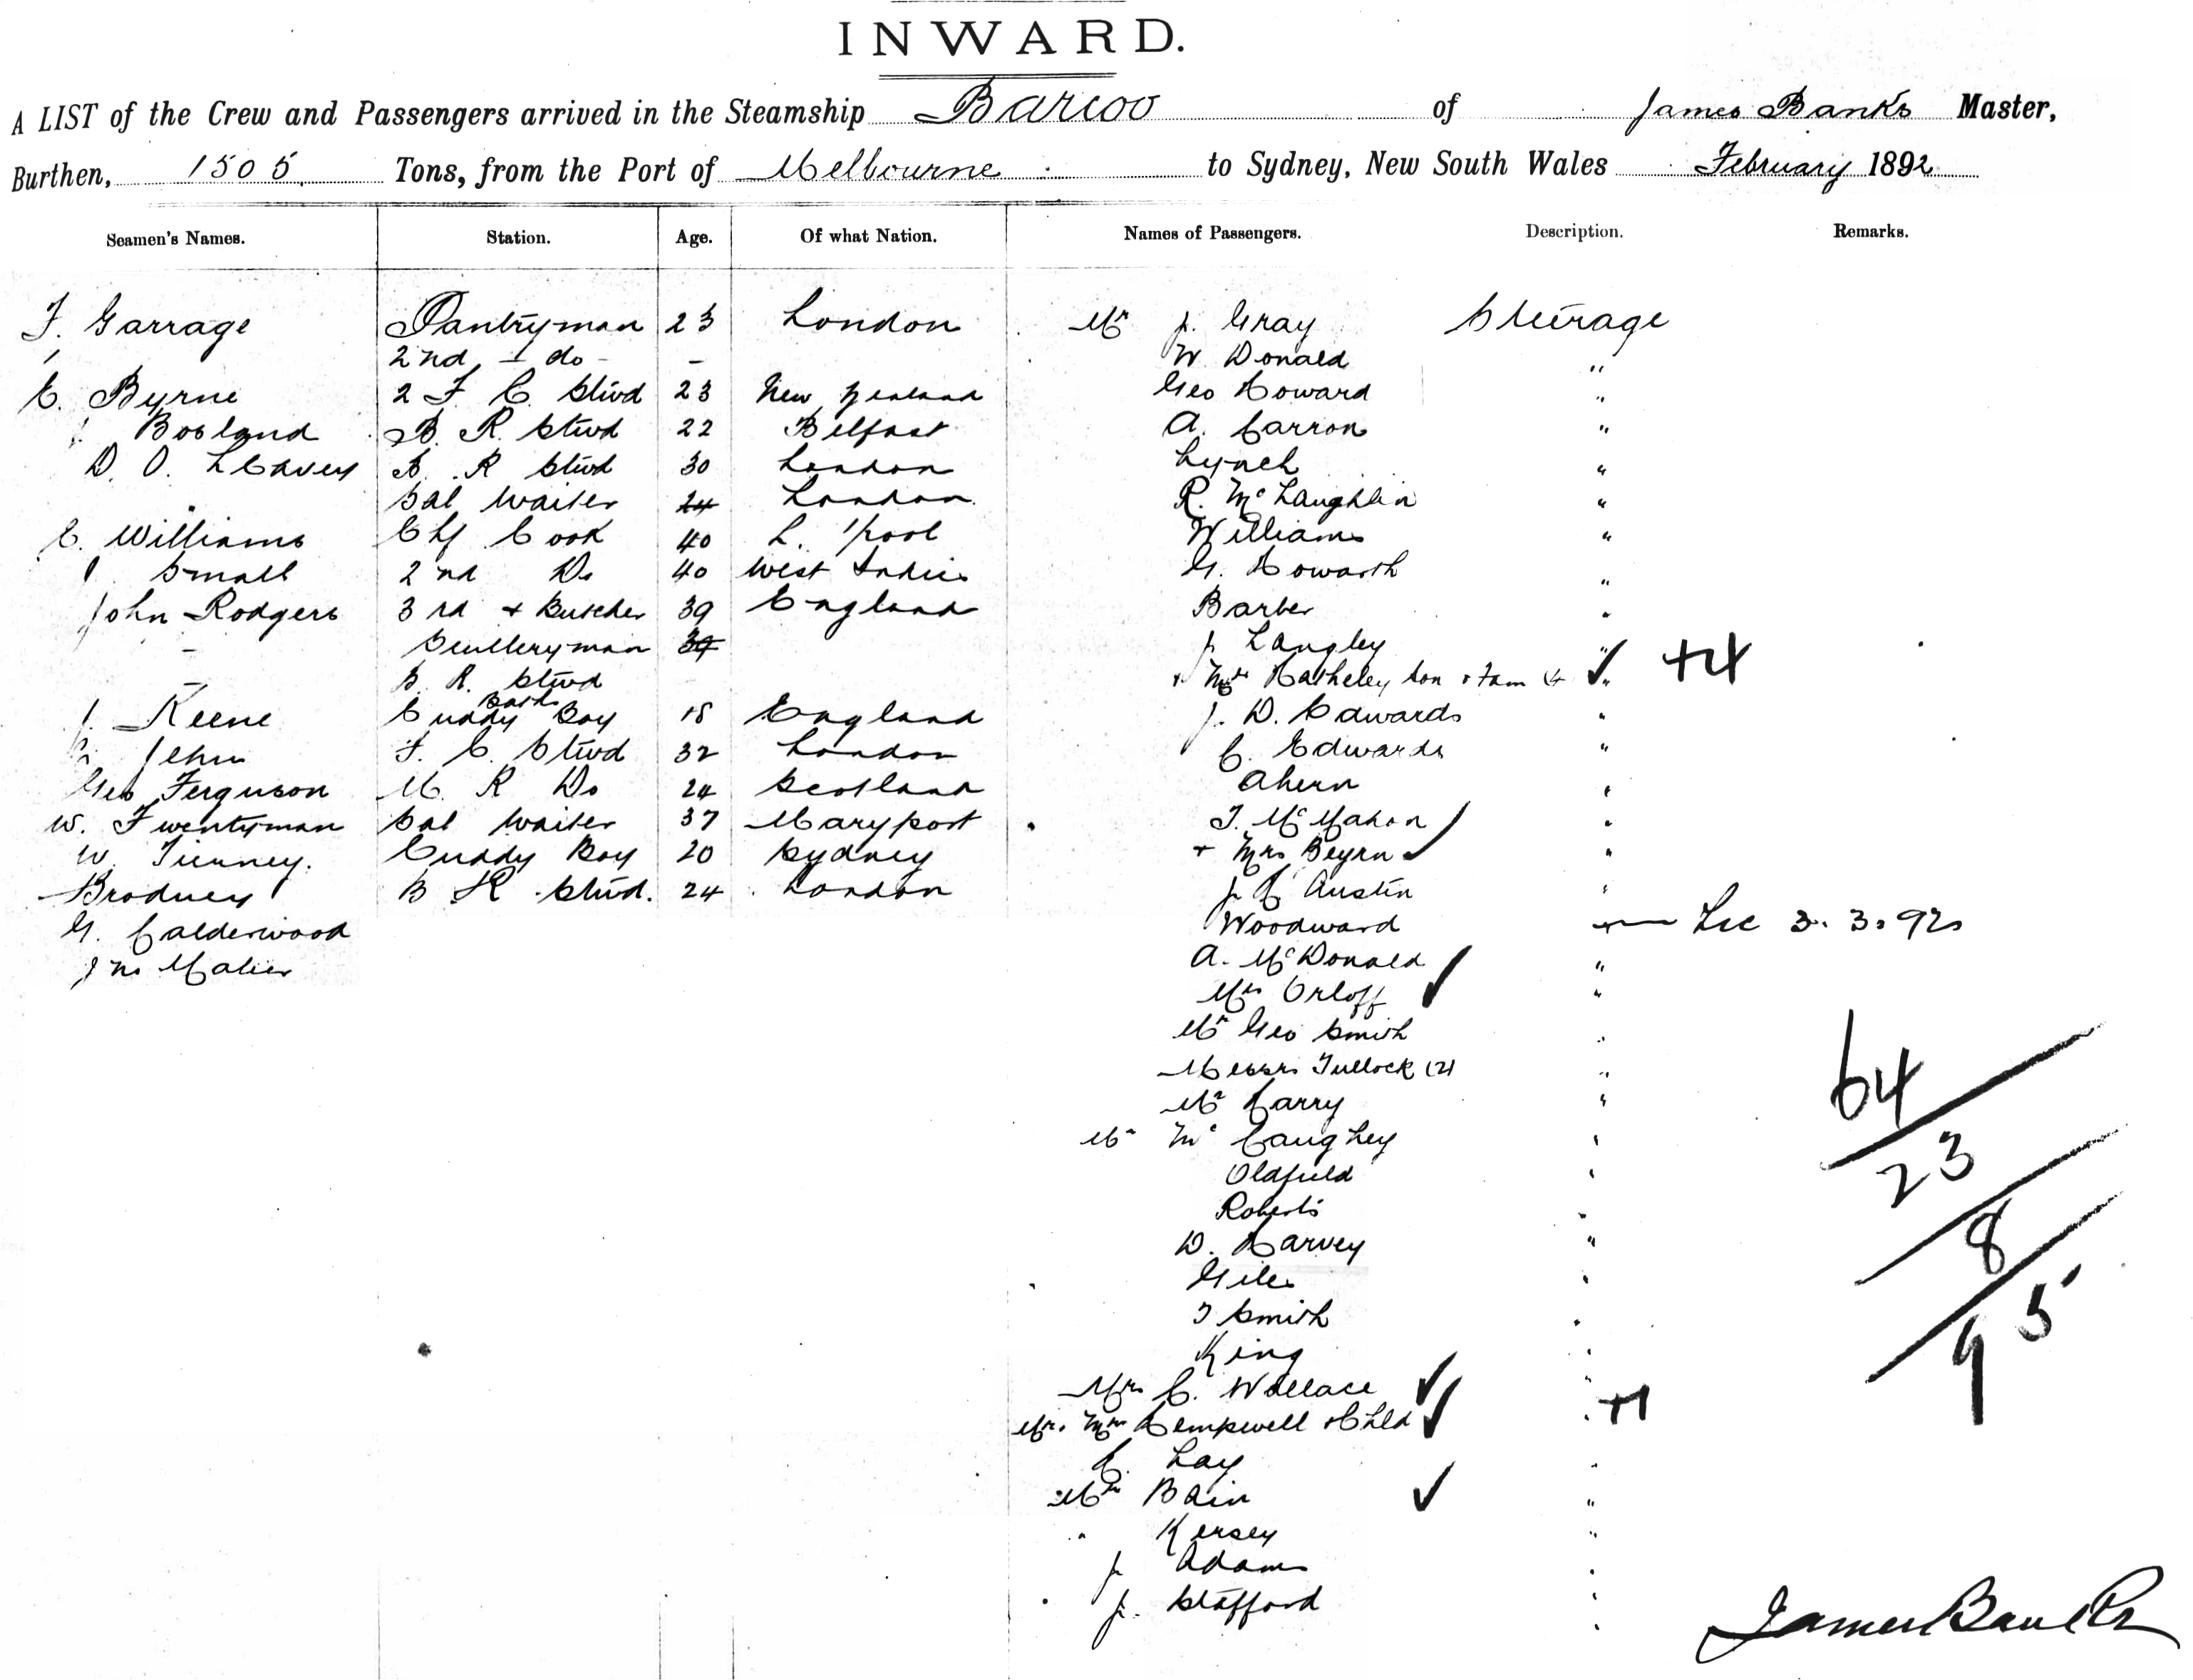 INWARD.
A LIST of the Crew and Passengers arrived in the Steamship Barcoo of James Banks Master,
Burthen, 1505 Tons, from the Port of Melbourne to Sydney, New South Wales February 1892
Seamen's Names. Station. Age. Of what Nation. Names of Passengers. Description. Remarks.
F. Garrage Pantryman 23 London Mr J. Gray Steerage
2nd - do - - W Donald "
C. Byrne 2 F. C. Stwd 23 New Zealand Geo Howard "
Bosland B. R. Stwd 22 Belfast A. Carron "
D. O. B. R Stwd 30 London Lynch "
Sal Waiter 24 London R. McLaughlin "
C. Williams Chf Cook 40 L'pool Williams "
Small 2nd Do 40 West Indies G. Howarth "
John Rodgers 3rd & Butcher 39 England Barber "
- Scullery man 39 J Langley "
- B. R. Stwd Mrs Hatheley Son & fam (4 ✓ " +4
J. Keene Baths Cuddy Boy 18 England J. D. Edwards "
John F. C. Stwd 32 London C. Edwards "
Geo Ferguson M. R Do 24 Scotland Ahern "
W. Twentyman Sal Waiter 37 Maryport T. McMahon "
W. Tierney. Cuddy Boy 20 Sydney + Mrs Beyrn ✓ "
Brodney B R Stwd. 24 London J C Austin "
G. Calderwood Woodward " 3.3.92
Jno Maher A. McDonald "
Mrs Orloff ✓ "
Mr Geo Smith "
Messrs Tullock (2) "
Mr Carry "
Mr Mc Caughey "
Oldfield "
Roberts "
D. Harvey "
Giles "
T Smith "
King "
Mrs C. Wallace ✓ "
Mr. Mrs Hempwell & Chld ✓ " +1
C. Lay "
Mrs Bain ✓ "
" Kersey "
J Adams "
J. Stafford "
64
23
8
95
James Banks